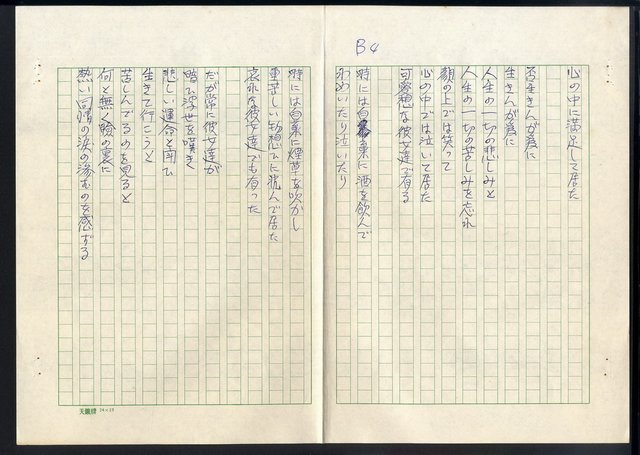 B4
心の中に満足して居た
否生きんが為に
生きんが為に
人生の一切の悲しみと
人生の一切の苦しみを忘れ
顔の上では笑って
心の中では泣いて居た
可哀想な彼女達で有る
時には自棄に酒を飲んで
わめいたり泣いたり
時には自棄に煙草を吹かし
重苦しい幻想に耽んで居た
哀れな彼女達でも有った
だが常に彼女達が
暗い浮世を嘆き
悲しい運命と闘ひ
生きて行こうと
苦しんでるのを見ると
何と無く瞼の裏に
熱い同情の涙の滲むのを感ずる
天龍牌 24×25